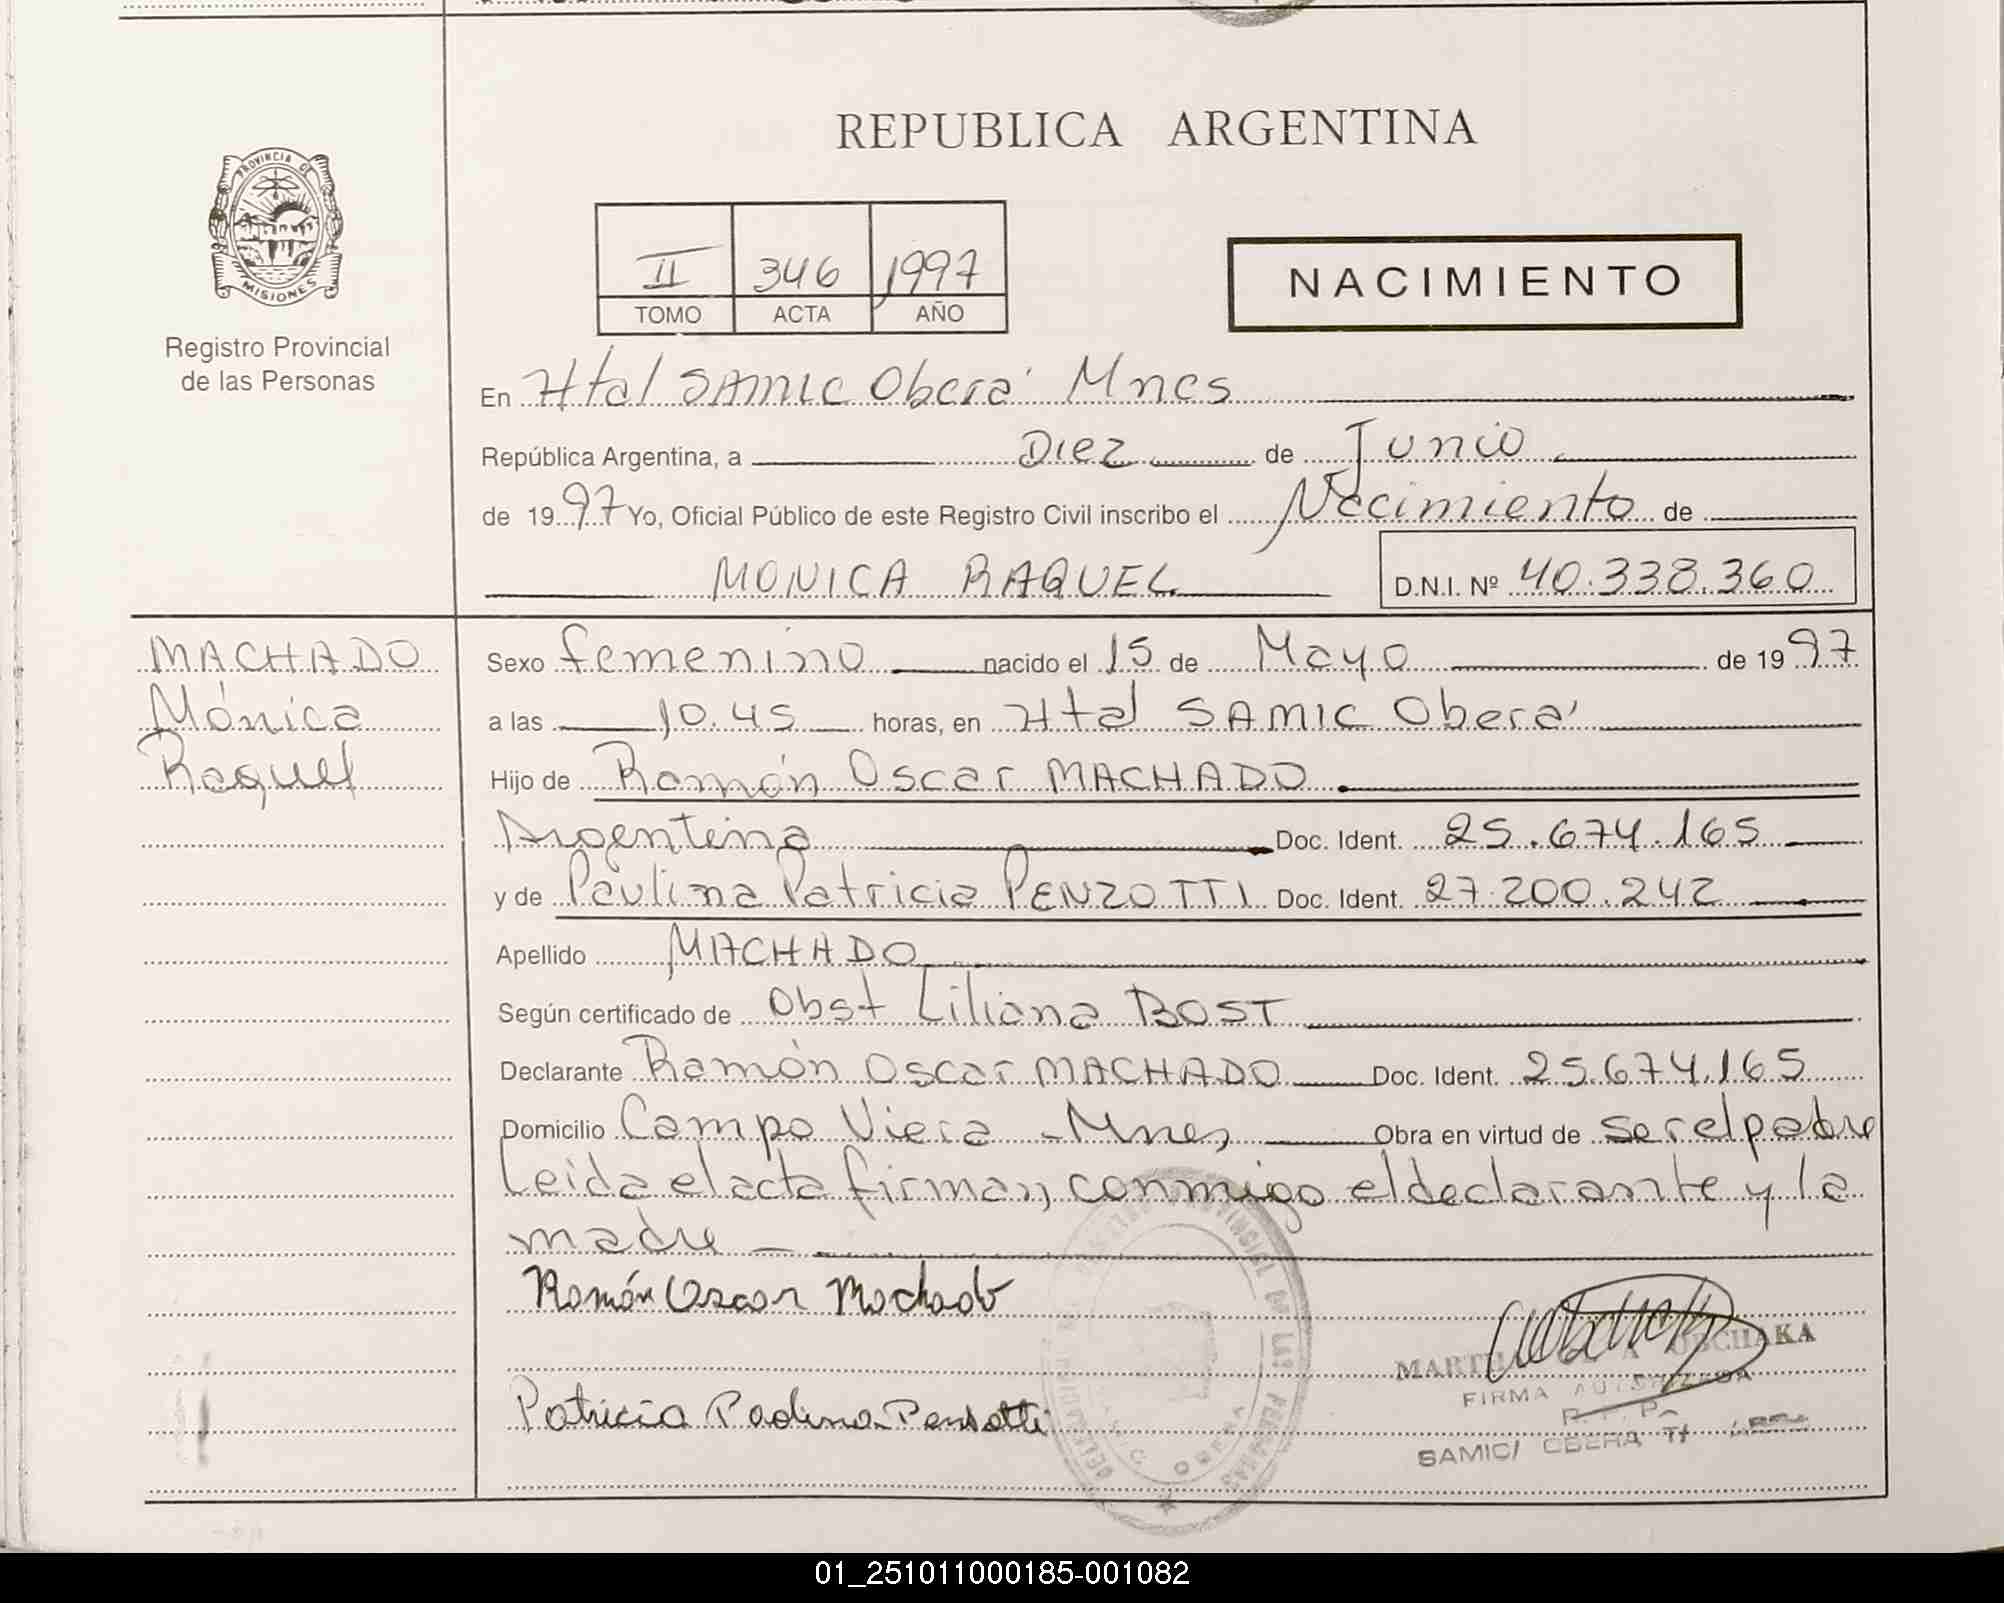 PROVINCIA DE
MISIONES
Registro Provincial
de las Personas
REPUBLICA ARGENTINA
II 346 1997
TOMO ACTA AÑO
NACIMIENTO
En Htal SAMIC Oberá Mnes
República Argentina, a Diez de Junio
de 1997 Yo, Oficial Público de este Registro Civil inscribo el Nacimiento de
MONICA RAQUEL D.N.I. Nº 40.338.360
MACHADO
Mónica
Raquel
Sexo femenino nacido el 15 de Mayo de 1997
a las 10.45 horas, en Htal SAMIC Oberá
Hijo de Ramón Oscar MACHADO
Argentina Doc. Ident. 25.674.165
y de Paulina Patricia PENZOTTI Doc. Ident. 27.200.242
Apellido MACHADO
Según certificado de Obst Liliana BOST
Declarante Ramón Oscar MACHADO Doc. Ident. 25.674.165
Domicilio Campo Viera - Mnes Obra en virtud de ser el padre
Leida el acta firman conmigo el declarante y la
madre
Ramón Oscar Machado
Patricia Paolina Pensotti
PROVINCIAL DE LAS PERSONAS
OBERA
FIRMA AUTORIZADA
SAMIC/ OBERA
01_251011000185-001082